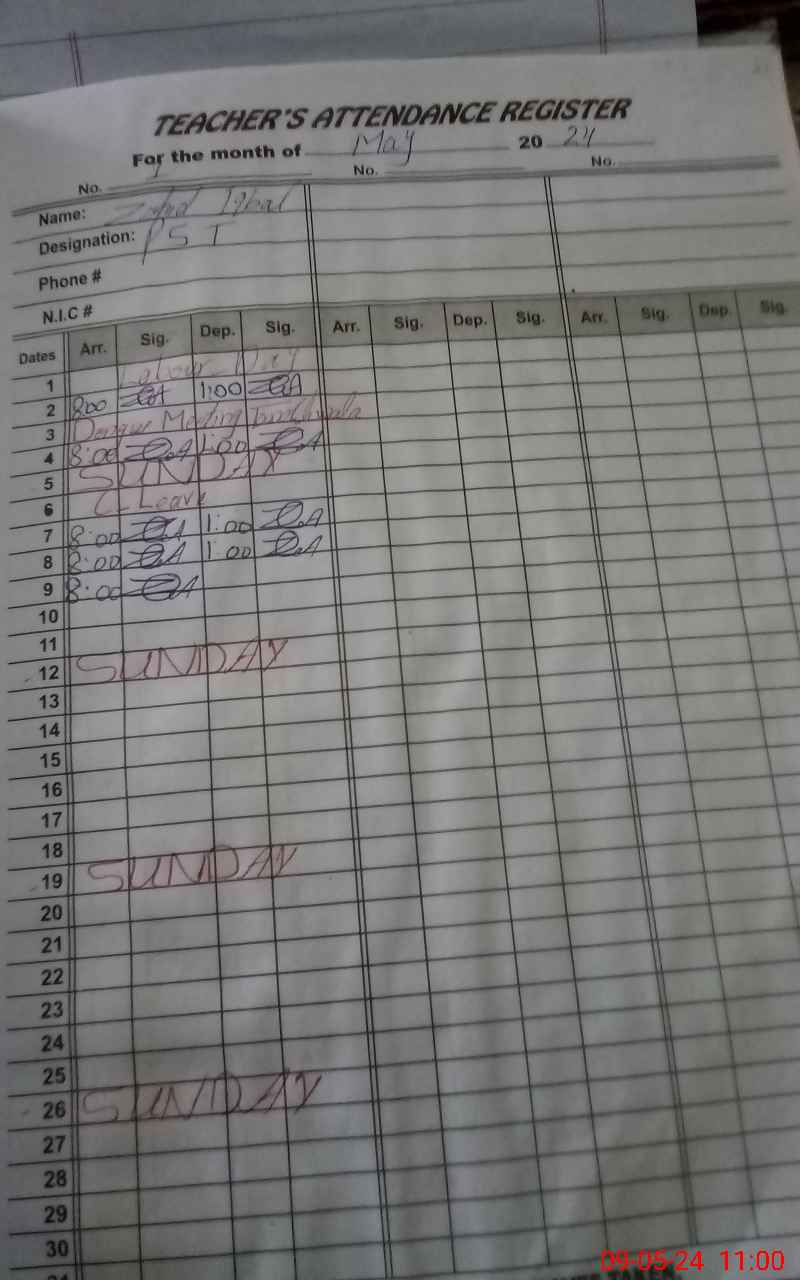 TEACHER'S ATTENDANCE REGISTER
For the month of May 2024
No. No. No.
Name: Iqbal
Designation: PST
Phone #
N.I.C #
Dates Arr. Sig. Dep. Sig. Arr. Sig. Dep. Sig. Arr. Sig. Dep. Sig.
1 Labour Day
2 8:00 1:00
3 Dengue Meeting
4 8:00 1:00
5 SUNDAY
6 C-Leave
7 8:00 1:00
8 8:00 1:00
9 8:00
10
11
12 SUNDAY
13
14
15
16
17
18
19 SUNDAY
20
21
22
23
24
25
26 SUNDAY
27
28
29
30
09-05-24 11:00